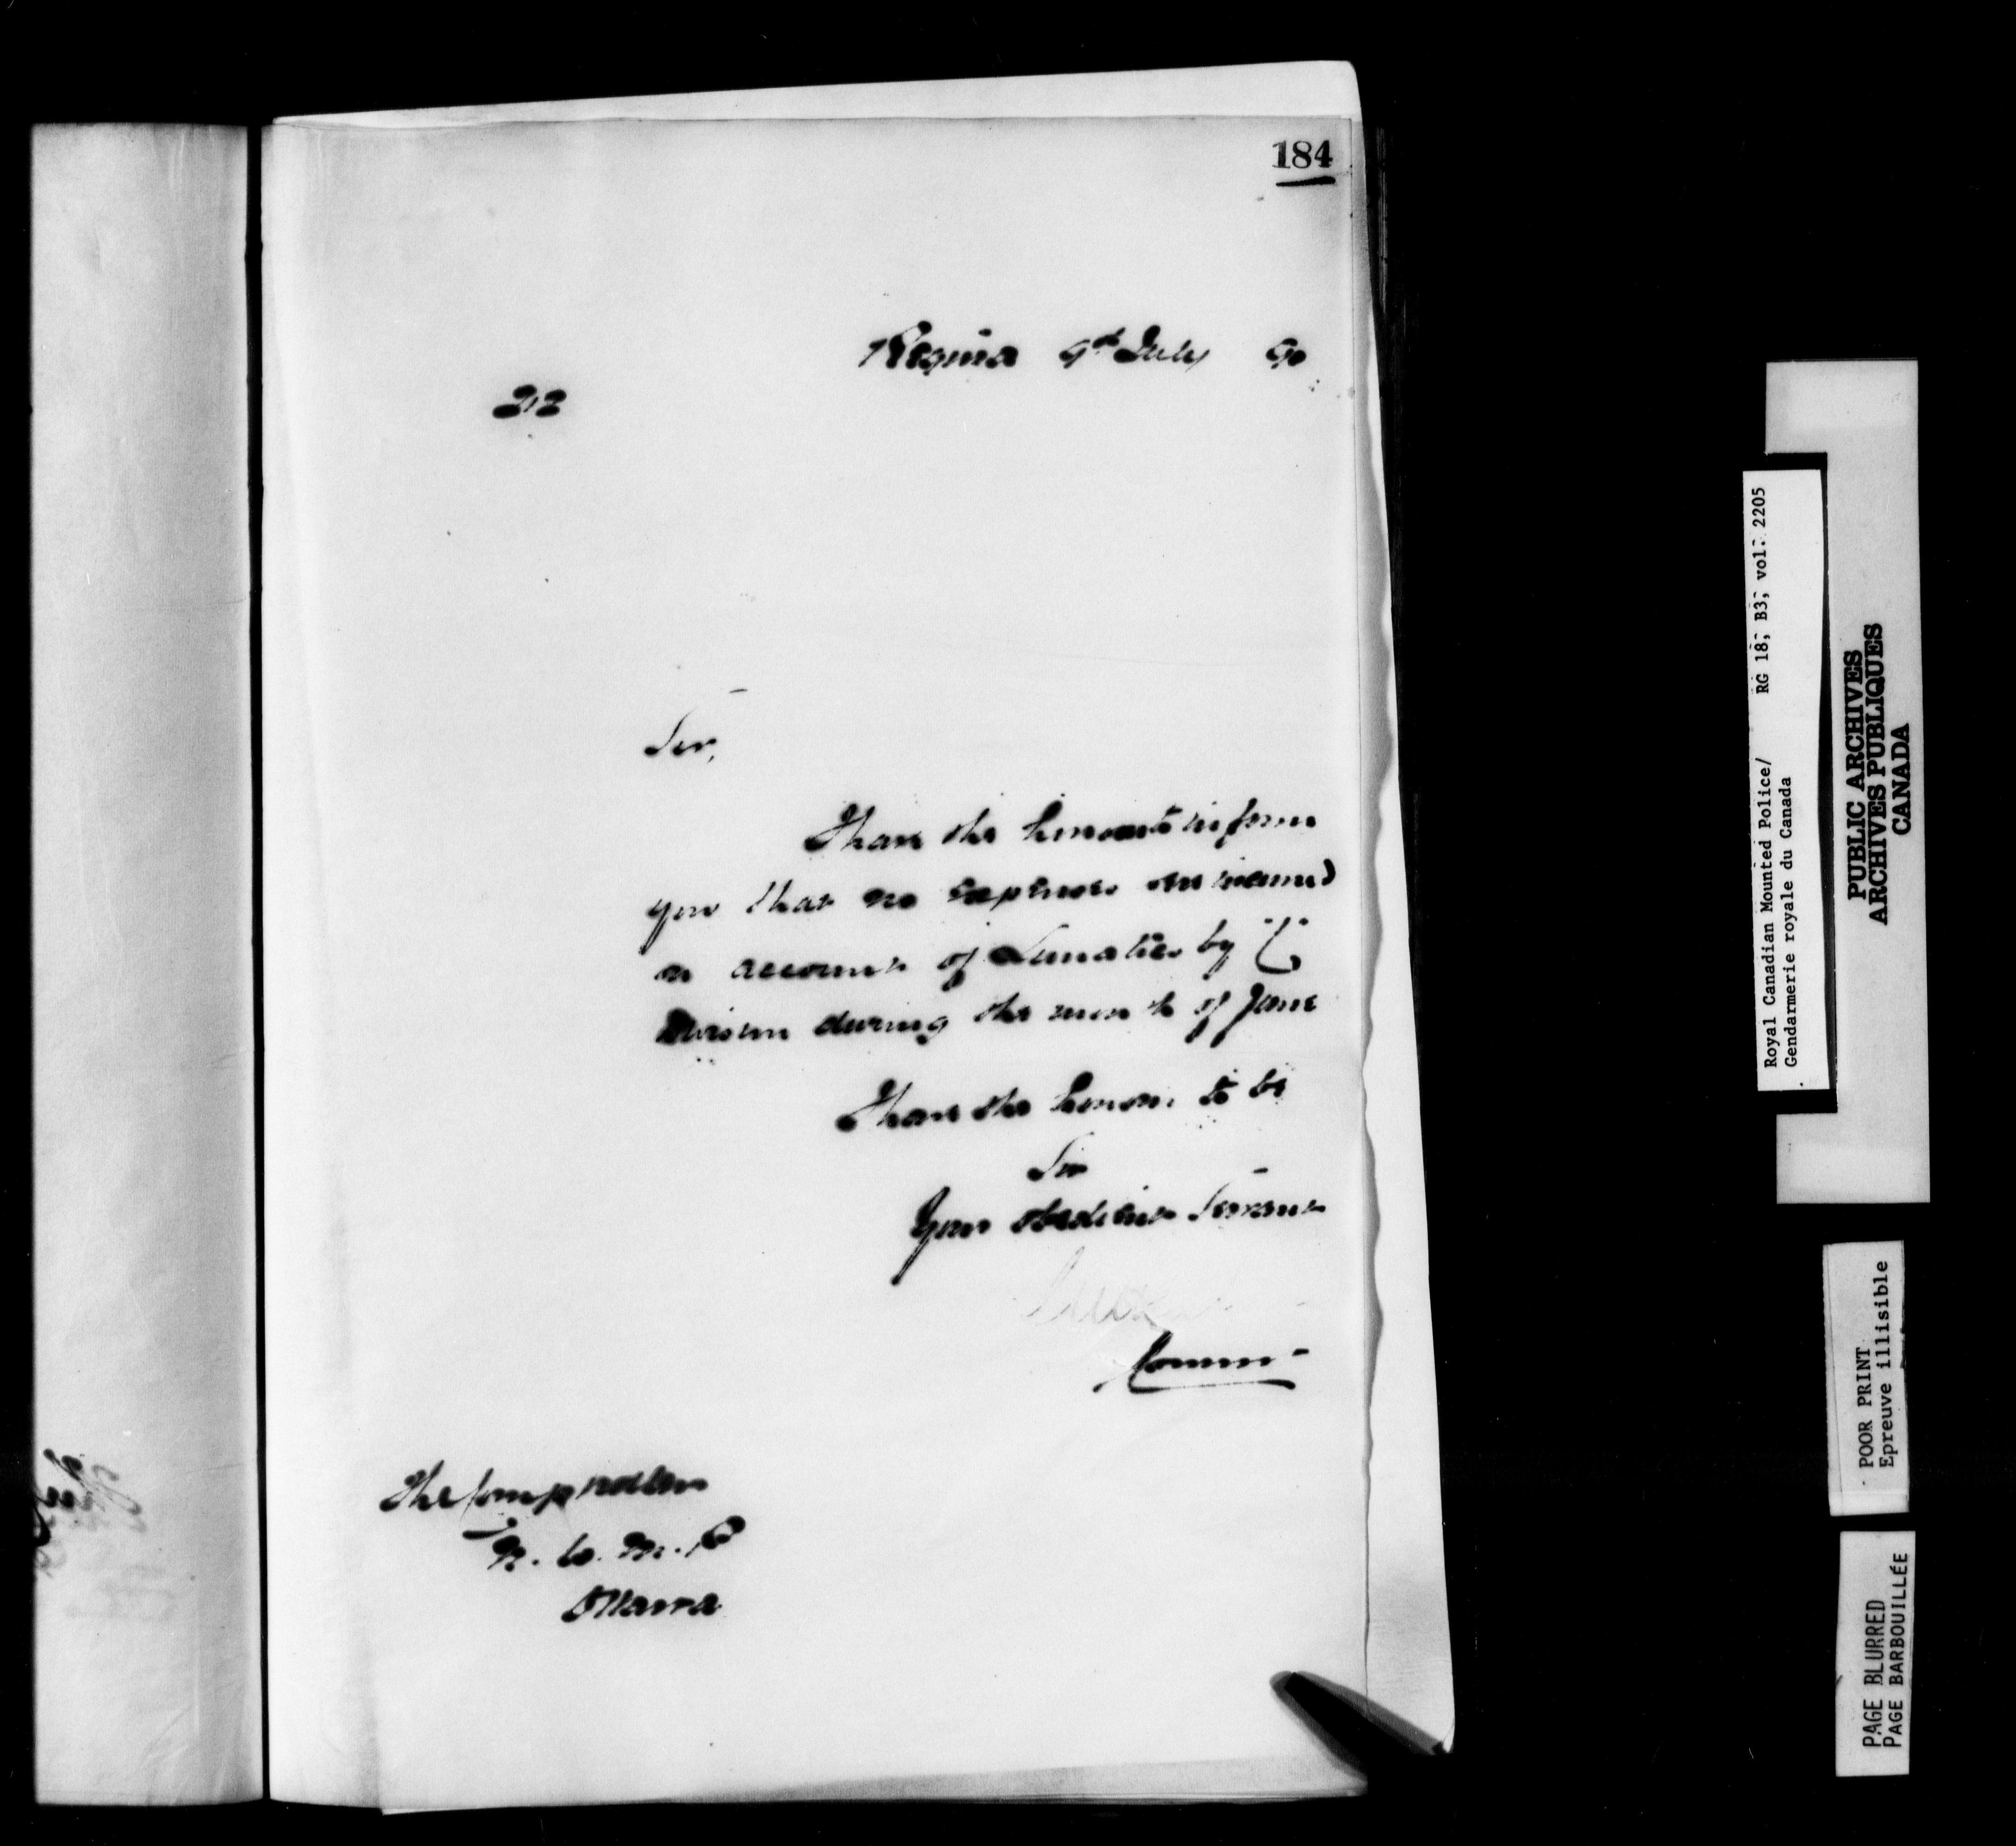 184
Regina 9th July 90
212
Sir,
I have the honour to inform
you that no expenses were incurred
on account of Lunatics by "C"
Division during the month of June
I have the honour to be
Sir
Your obedient Servant
Commr
The Comptroller
N. W. M. P
Ottawa
Royal Canadian Mounted Police/ RG 18, B3, vol. 2205
Gendarmerie royale du Canada
PUBLIC ARCHIVES
ARCHIVES PUBLIQUES
CANADA
POOR PRINT
Epreuve illisible
PAGE BLURRED
PAGE BARBOUILLÉE